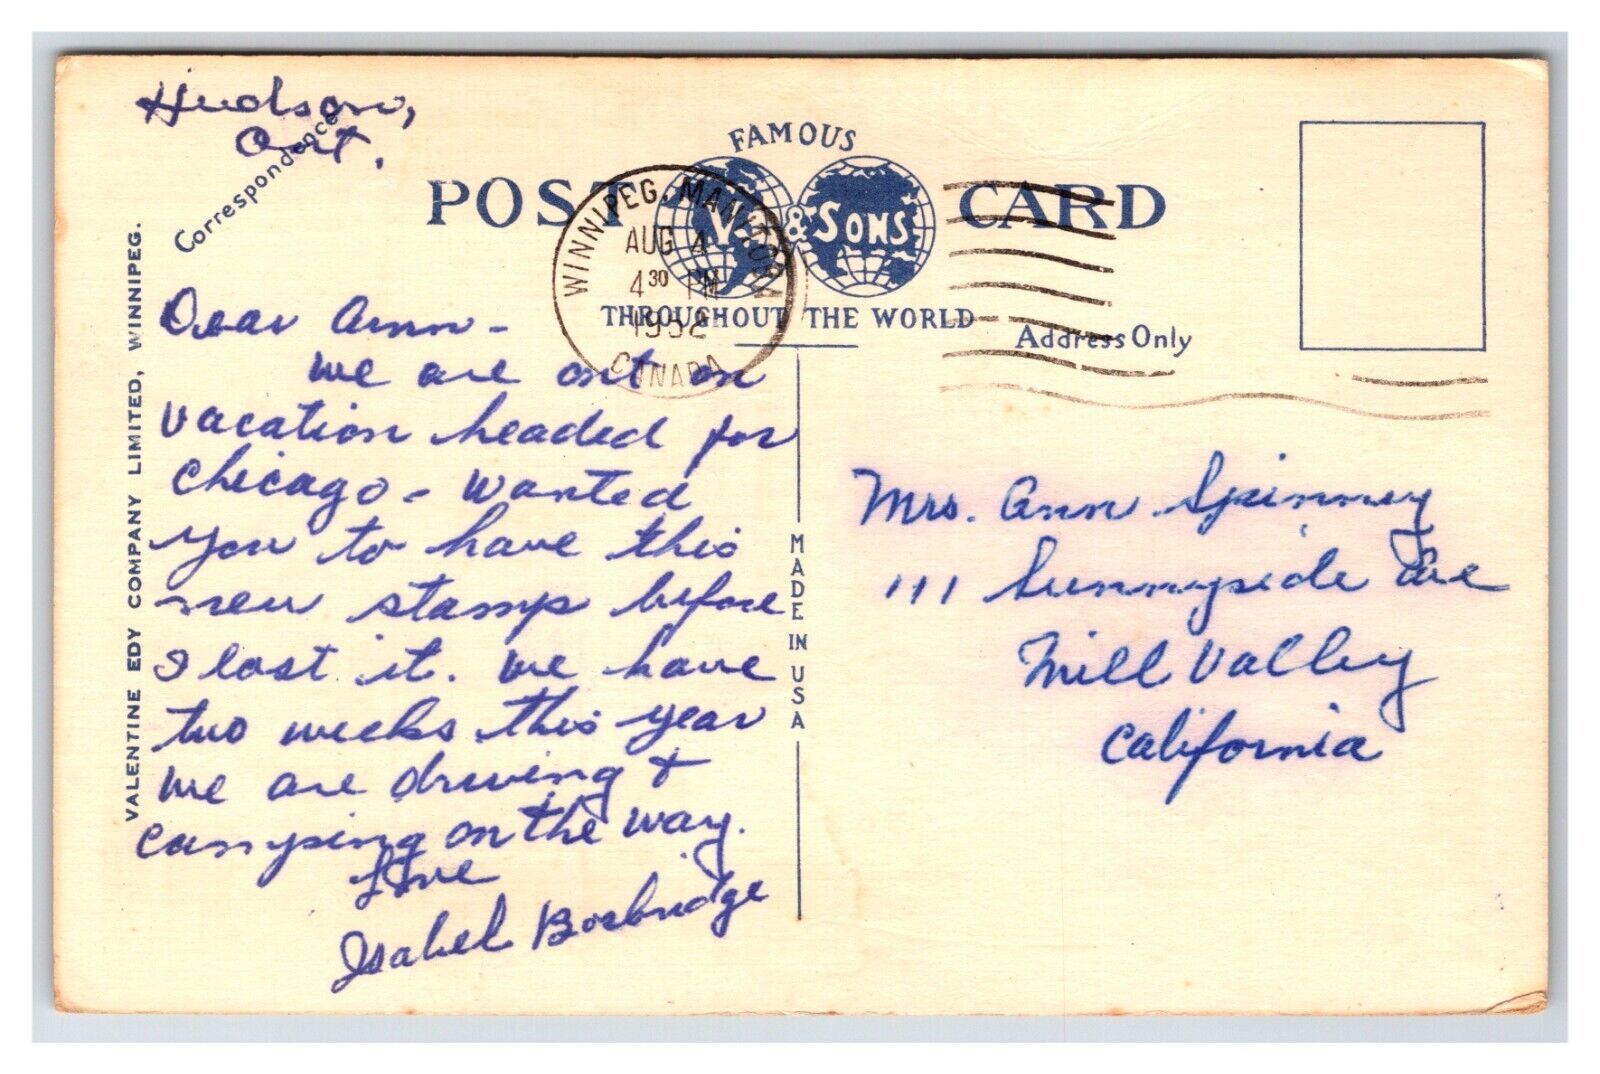 Hudson,
Ont.
Correspondence
FAMOUS
POST CARD
V. & SONS
THROUGHOUT THE WORLD
Address Only
WINNIPEG, MANITOBA
AUG 4
4 30 PM
1952
CANADA
Dear Ann -
We are out on
vacation headed for
Chicago - wanted
you to have this
new stamp before
I lost it. We have
two weeks this year
We are driving &
camping on the way.
Love
Isabel Borbridge
Mrs. Ann Spinney
111 Sunnyside Ave
Mill Valley
California
VALENTINE EDY COMPANY LIMITED, WINNIPEG.
MADE IN USA